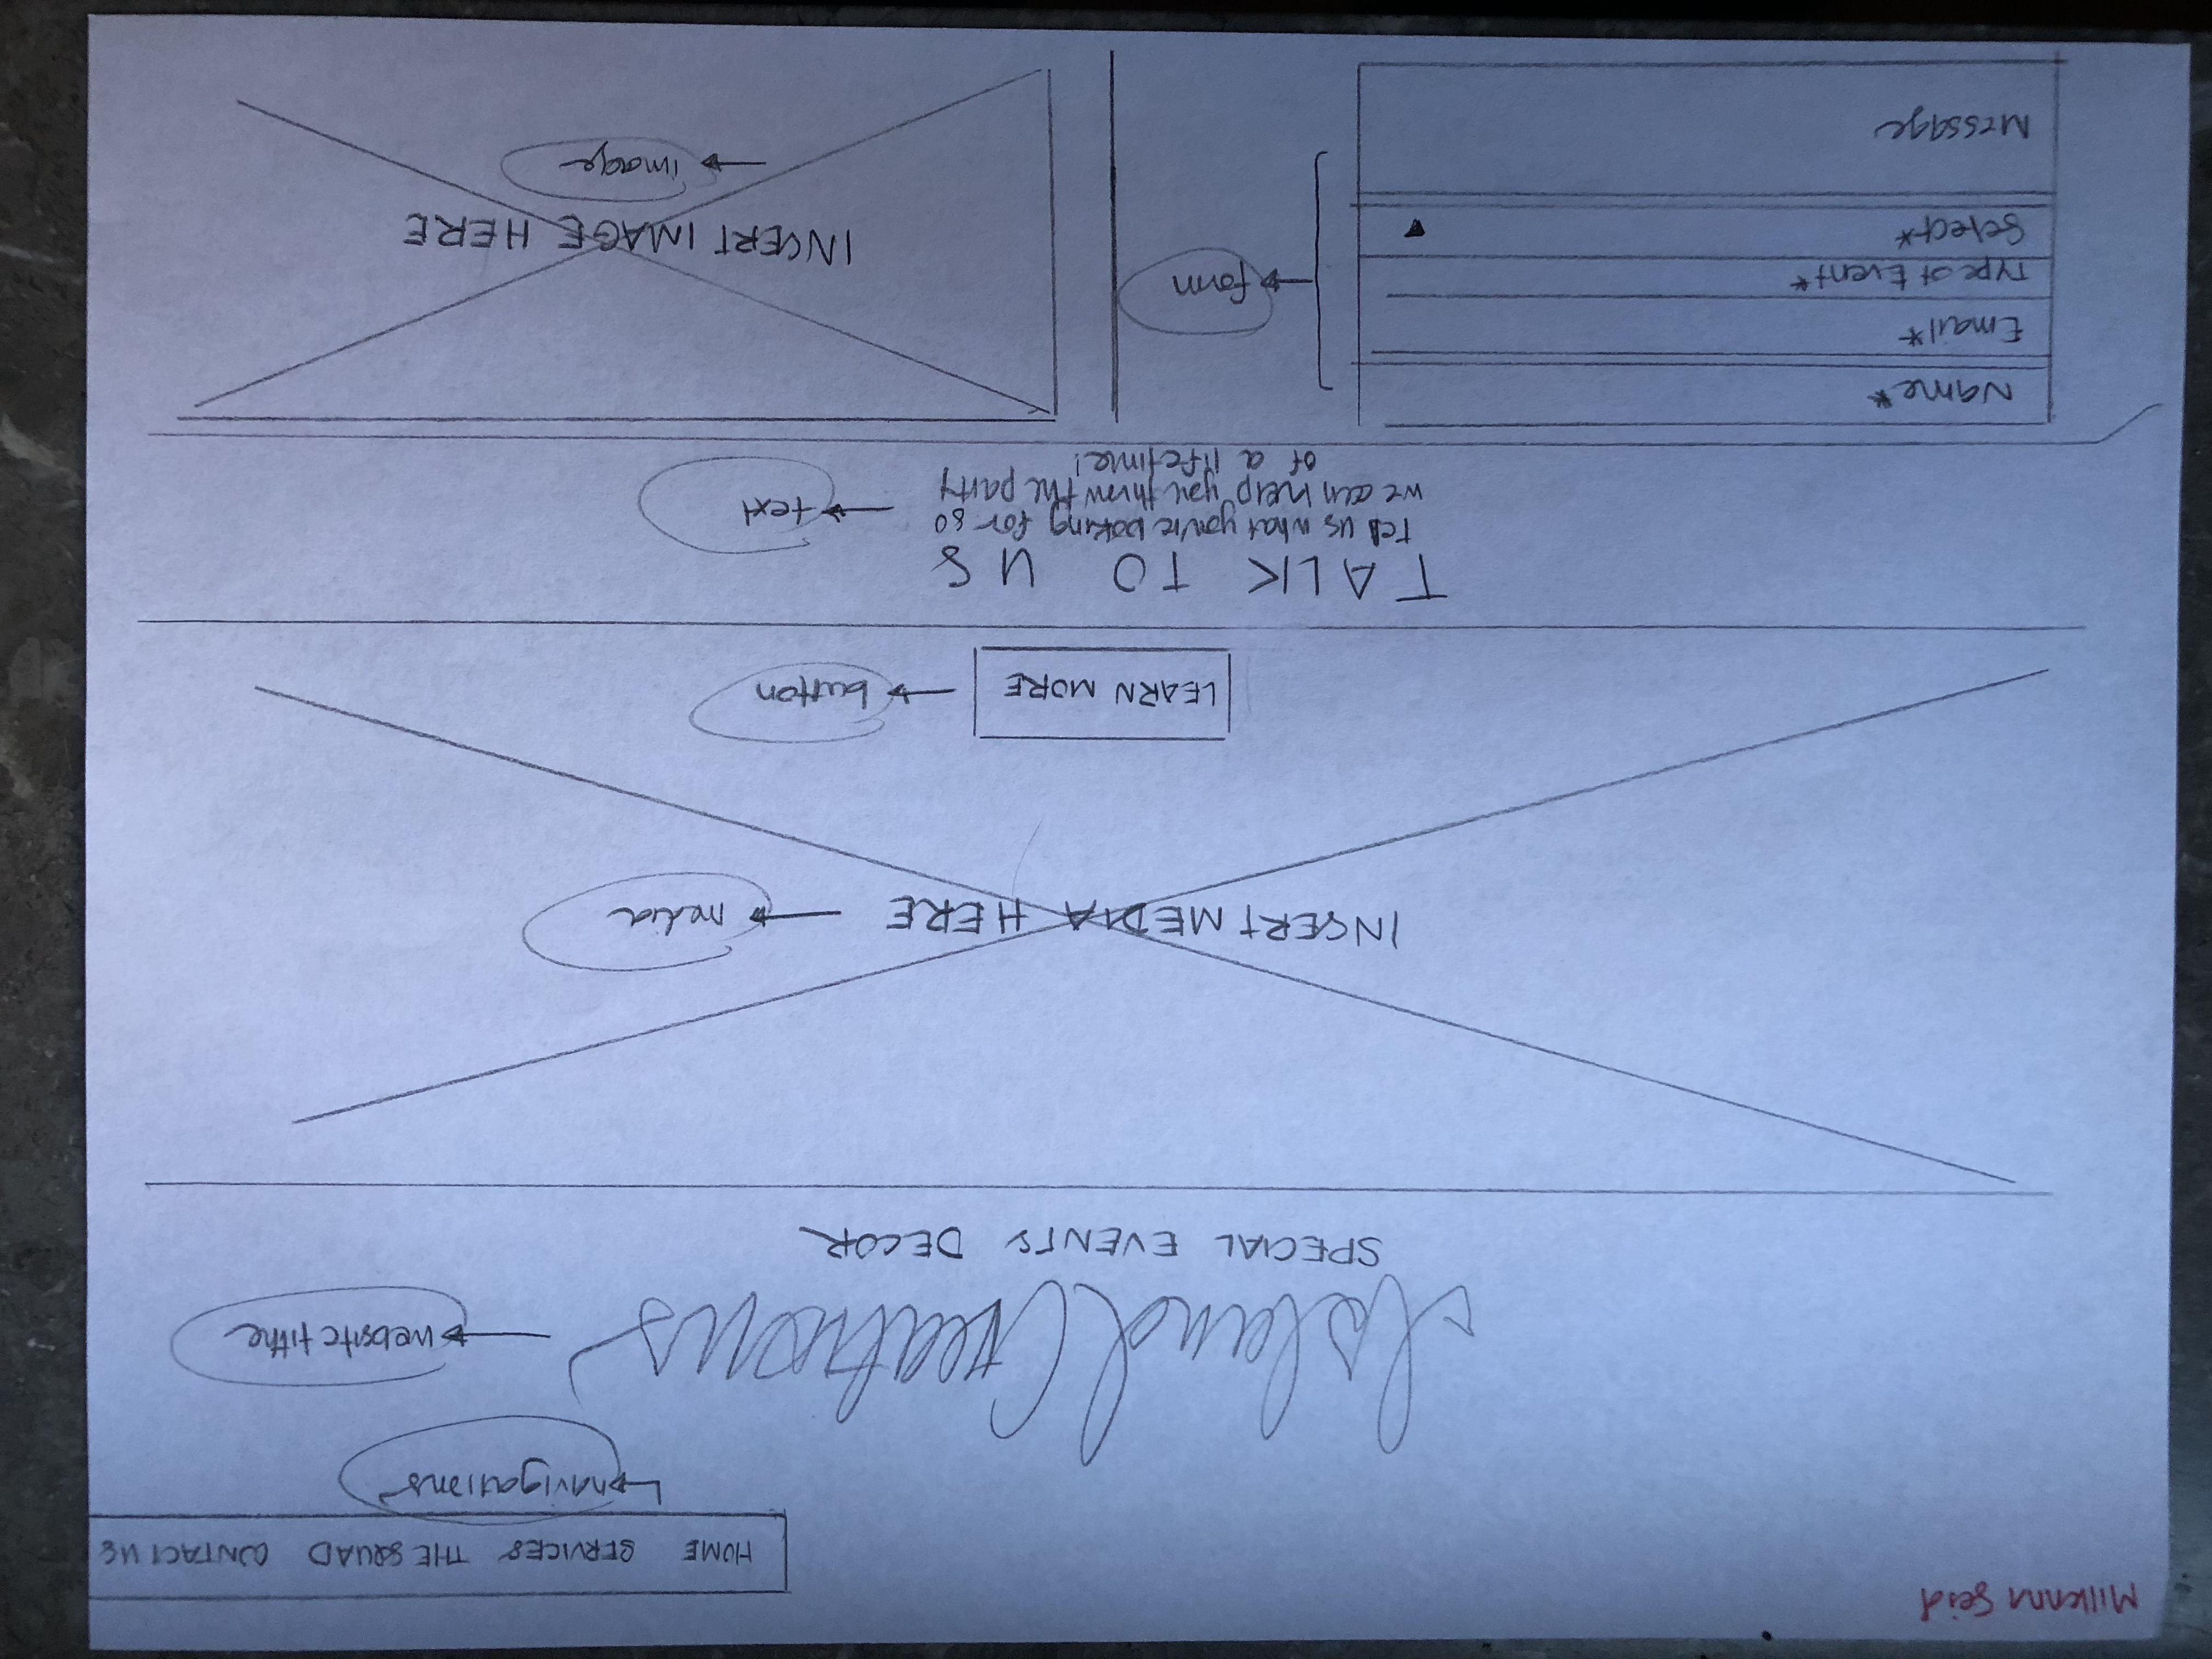 Milkana Seid
HOME SERVICES THE SQUAD CONTACT US
navigations
Island Creations
website title
SPECIAL EVENTS DECOR
INSERT MEDIA HERE
media
LEARN MORE
button
TALK TO US
Tell us what you're looking for so
we can help you throw the party
of a lifetime!
text
Name*
Email*
Type of Event*
Select*
Message
form
INSERT IMAGE HERE
image